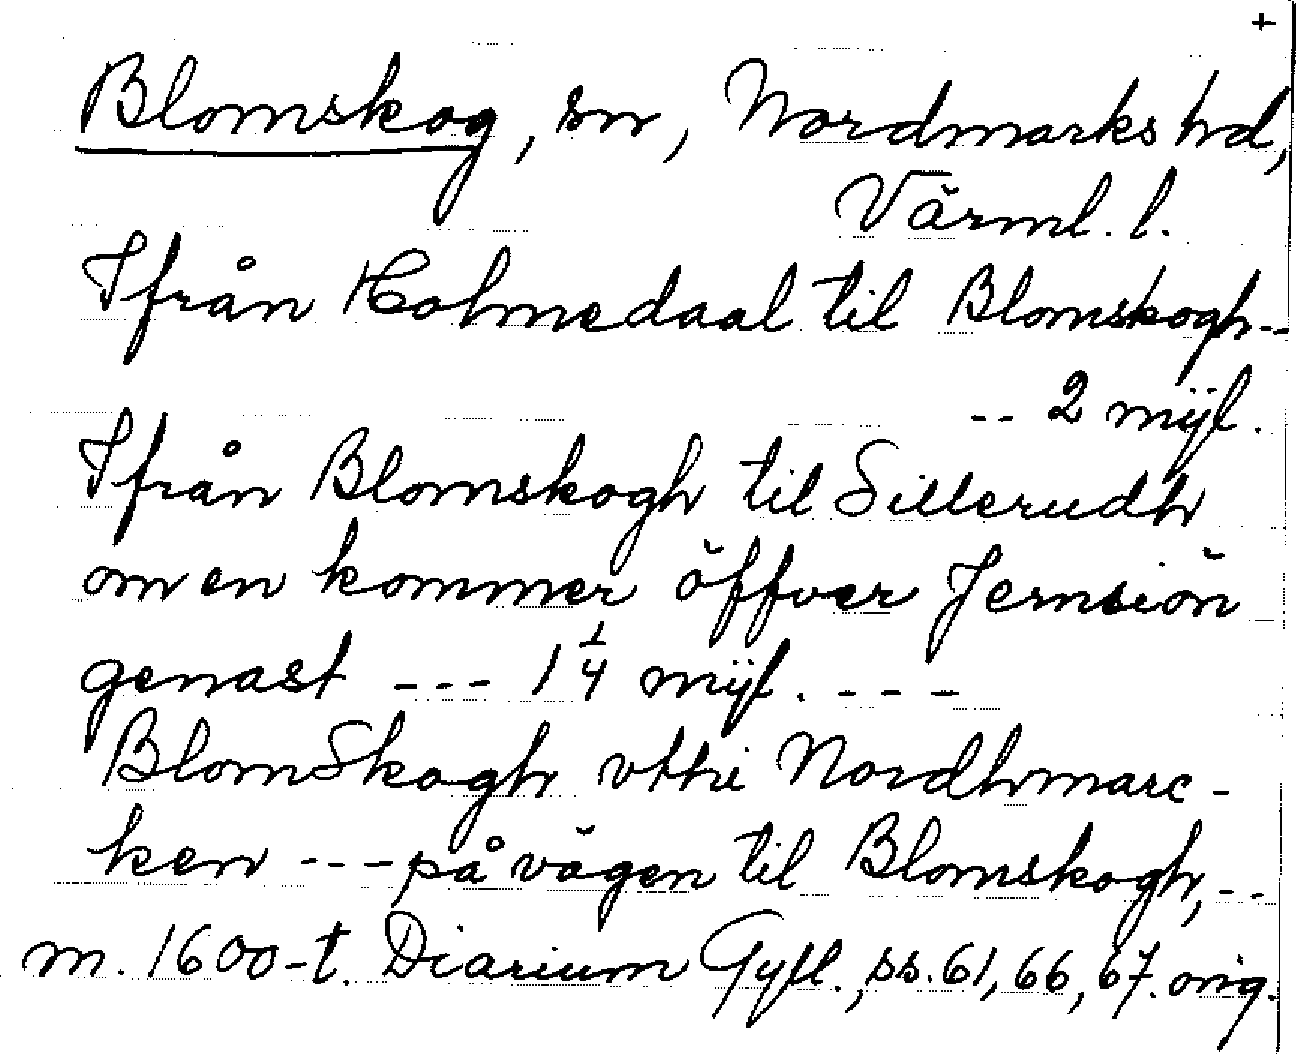 +
Blomskog, sn, Nordmarks hd,
Värml. l.
Ifrån Holmedaal til Blomskogh--
-- 2 mÿl.
Ifrån Blomskogh til Sillerudh
om en kommer öffver Jernsiön
genast --- 1 1/4 mÿl. ---
BlomSkogh vthi Nordhmarc-
ken --- på vägen til Blomskogh, --
m. 1600-t. Diarium Gyll., ss. 61, 66, 67. orig.